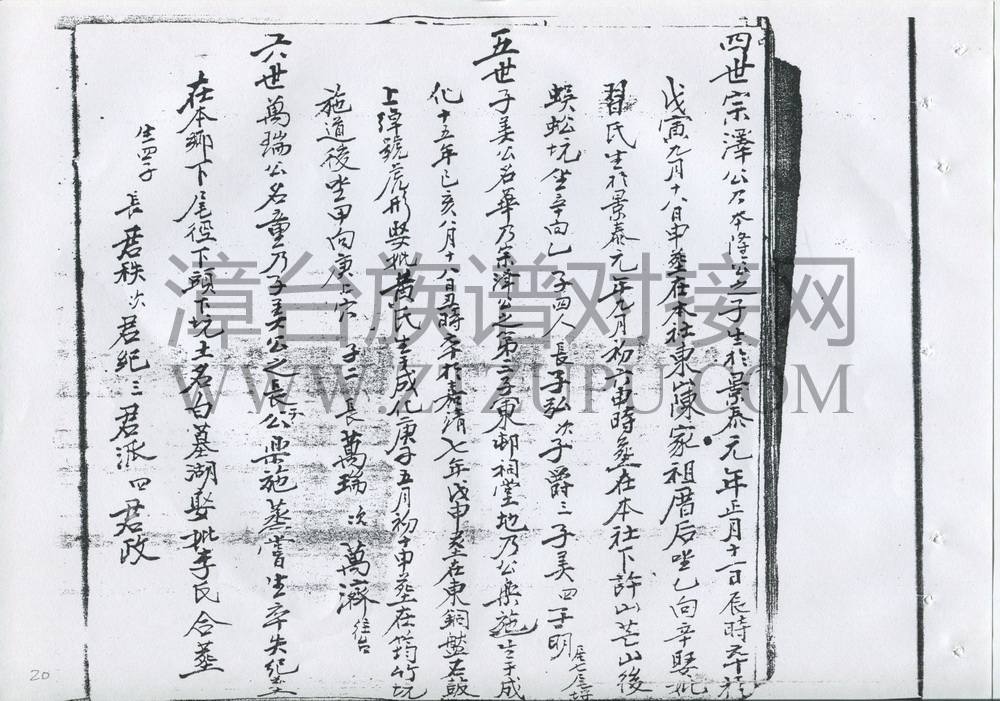 四世宗澤公乃本隆公之子生於景泰元年正月十一日辰時卒於
戊寅九月十八日申葬在本社東山陳家祖厝后坐乙向辛娶妣
習氏生於景泰元年九月初六申時葬在本社下許山芒山後
蜈蚣坑坐辛向乙 子四人 長子弘 次子爵 三子美 四子明
五世子美公名華乃宗澤公之第三子東邨祠堂地乃公樂施生于成
化十五年己亥八月十八日丑時卒於嘉靖七年戊申塟在東銅盤石鼓
上綽號虎形娶妣黃氏生于成化庚子五月初十申塟在筠竹坑
施道後坐甲向庚上穴 子二 長萬瑞 次萬濟 往台
六世萬瑞公名重乃子美公之長子公樂施蒸嘗生卒失紀塟
在本鄉下尾徑下頭下坑土名白墓湖娶妣李氏合葬
生四子 長君秩 次君紀 三君派 四君政
漳台族谱对接网
WWW.ZTZUPU.COM
20